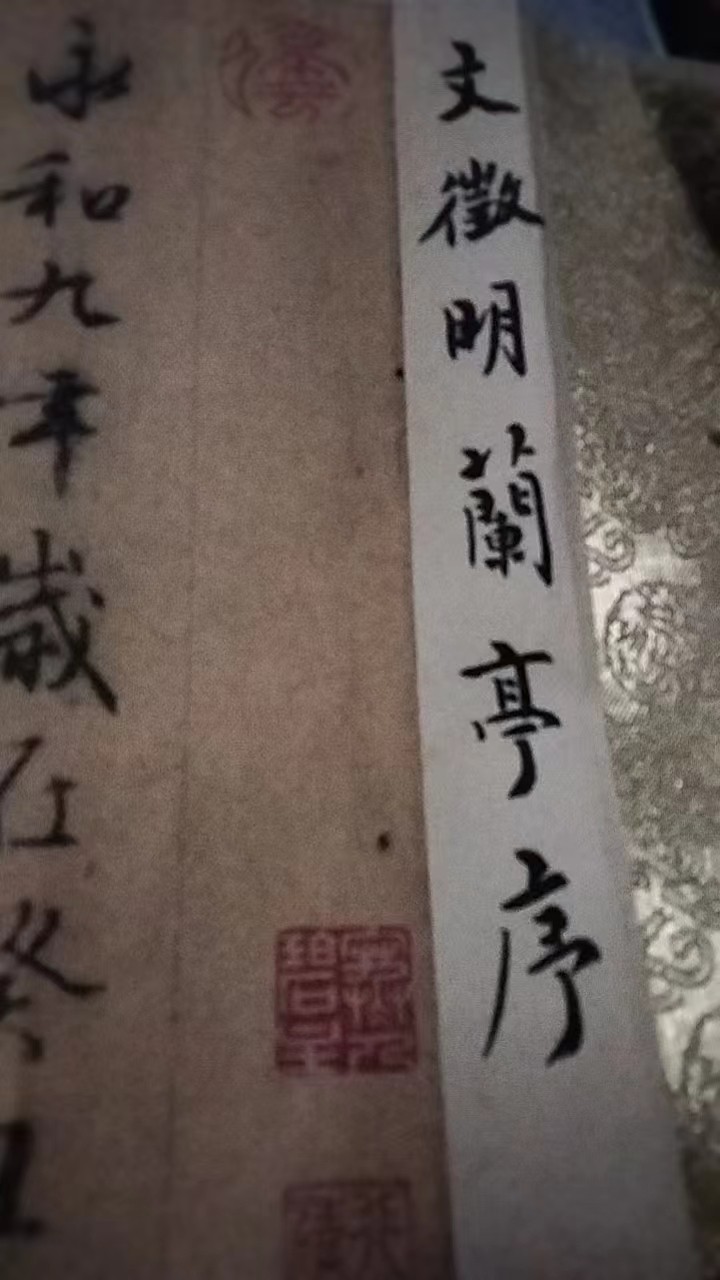 文徵明蘭亭序
永和九年歲在癸丑